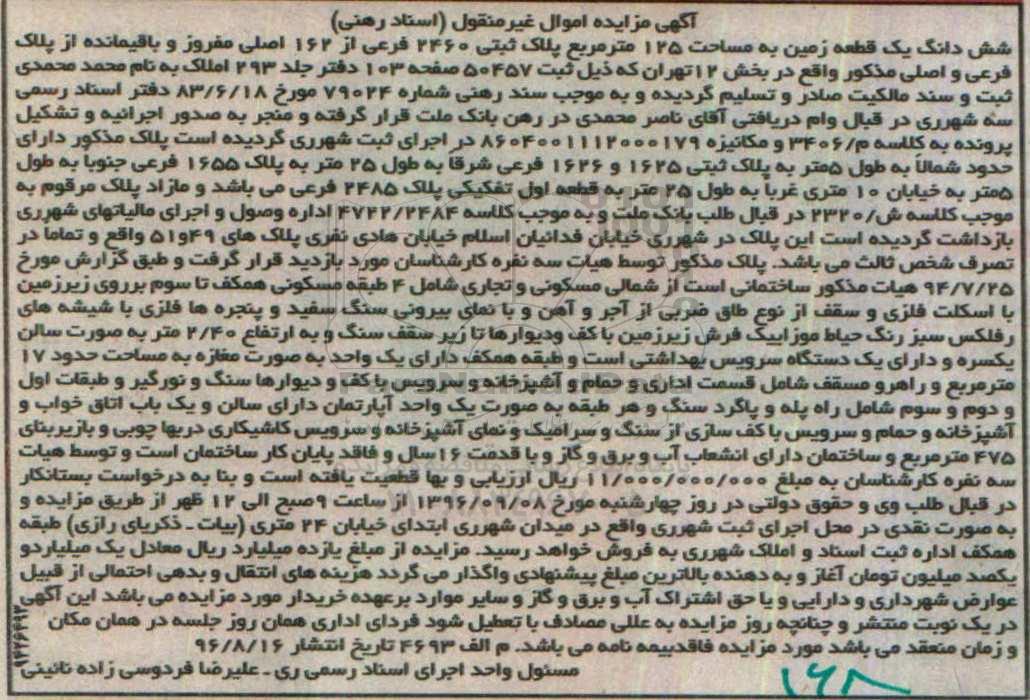 آگهی مزایده اموال غیرمنقول (اسناد رهنی)
شش دانگ یک قطعه زمین به مساحت ۱۲۵ مترمربع پلاک ثبتی ۲۴۶۰ فرعی از ۱۶۲ اصلی مفروز و باقیمانده از پلاک
فرعی و اصلی مذکور واقع در بخش ۱۲تهران که ذیل ثبت ۵۰۴۵۷ صفحه ۱۰۳ دفتر جلد ۲۹۳ املاک به نام محمد محمدی
ثبت و سند مالکیت صادر و تسلیم گردیده و به موجب سند رهنی شماره ۷۹۰۲۴ مورخ ۸۳/۶/۱۸ دفتر اسناد رسمی
سه شهرری در قبال وام دریافتی آقای ناصر محمدی در رهن بانک ملت قرار گرفته و منجر به صدور اجرائیه و تشکیل
پرونده به کلاسه م/۳۴۰۶ و مکانیزه ۸۶۰۴۰۰۱۱۱۲۰۰۰۱۷۹ در اجرای ثبت شهرری گردیده است پلاک مذکور دارای
حدود شمالاً به طول ۵متر به پلاک ثبتی ۱۶۲۵ و ۱۶۲۶ فرعی شرقا به طول ۲۵ متر به پلاک ۱۶۵۵ فرعی جنوبا به طول
۵متر به خیابان ۱۰ متری غربا به طول ۲۵ متر به قطعه اول تفکیکی پلاک ۲۴۸۵ فرعی می باشد و مازاد پلاک مرقوم به
موجب کلاسه ش/۲۳۲۰ در قبال طلب بانک ملت و به موجب کلاسه ۴۷۲۲/۲۴۸۴ اداره وصول و اجرای مالیاتهای شهرری
بازداشت گردیده است این پلاک در شهرری خیابان فدائیان اسلام خیابان هادی نفری پلاک های ۴۹و۵۱ واقع و تماما در
تصرف شخص ثالث می باشد. پلاک مذکور توسط هیات سه نفره کارشناسان مورد بازدید قرار گرفت و طبق گزارش مورخ
۹۴/۷/۲۵ هیات مذکور ساختمانی است از شمالی مسکونی و تجاری شامل ۴ طبقه مسکونی همکف تا سوم برروی زیرزمین
با اسکلت فلزی و سقف از نوع طاق ضربی از آجر و آهن و با نمای بیرونی سنگ سفید و پنجره ها فلزی با شیشه های
رفلکس سبز رنگ حیاط موزاییک فرش زیرزمین با کف ودیوارها تا زیر سقف سنگ و به ارتفاع ۲/۴۰ متر به صورت سالن
یکسره و دارای یک دستگاه سرویس بهداشتی است و طبقه همکف دارای یک واحد به صورت مغازه به مساحت حدود ۱۷
مترمربع و راهرو مسقف شامل قسمت اداری و حمام و آشپزخانه و سرویس با کف و دیوارها سنگ و نورگیر و طبقات اول
و دوم و سوم شامل راه پله و پاگرد سنگ و هر طبقه به صورت یک واحد آپارتمان دارای سالن و یک باب اتاق خواب و
آشپزخانه و حمام و سرویس با کف سازی از سنگ و سرامیک و نمای آشپزخانه و سرویس کاشیکاری دربها چوبی و بازیربنای
۴۷۵ مترمربع و ساختمان دارای انشعاب آب و برق و گاز و با قدمت ۱۶سال و فاقد پایان کار ساختمان است و توسط هیات
سه نفره کارشناسان به مبلغ ۱۱/۰۰۰/۰۰۰/۰۰۰ ریال ارزیابی و بها قطعیت یافته است و بنا به درخواست بستانکار
در قبال طلب وی و حقوق دولتی در روز چهارشنبه مورخ ۱۳۹۶/۰۹/۰۸ از ساعت ۹صبح الی ۱۲ ظهر از طریق مزایده و
به صورت نقدی در محل اجرای ثبت شهرری واقع در میدان شهرری ابتدای خیابان ۲۴ متری (بیات ـ ذکریای رازی) طبقه
همکف اداره ثبت اسناد و املاک شهرری به فروش خواهد رسید. مزایده از مبلغ یازده میلیارد ریال معادل یک میلیاردو
یکصد میلیون تومان آغاز و به دهنده بالاترین مبلغ پیشنهادی واگذار می گردد هزینه های انتقال و بدهی احتمالی از قبیل
عوارض شهرداری و دارایی و یا حق اشتراک آب و برق و گاز و سایر موارد برعهده خریدار مورد مزایده می باشد این آگهی
در یک نوبت منتشر و چنانچه روز مزایده به عللی مصادف با تعطیل شود فردای اداری همان روز جلسه در همان مکان
و زمان منعقد می باشد مورد مزایده فاقدبیمه نامه می باشد. م الف ۴۶۹۳ تاریخ انتشار ۹۶/۸/۱۶
مسئول واحد اجرای اسناد رسمی ری ـ علیرضا فردوسی زاده نائینی